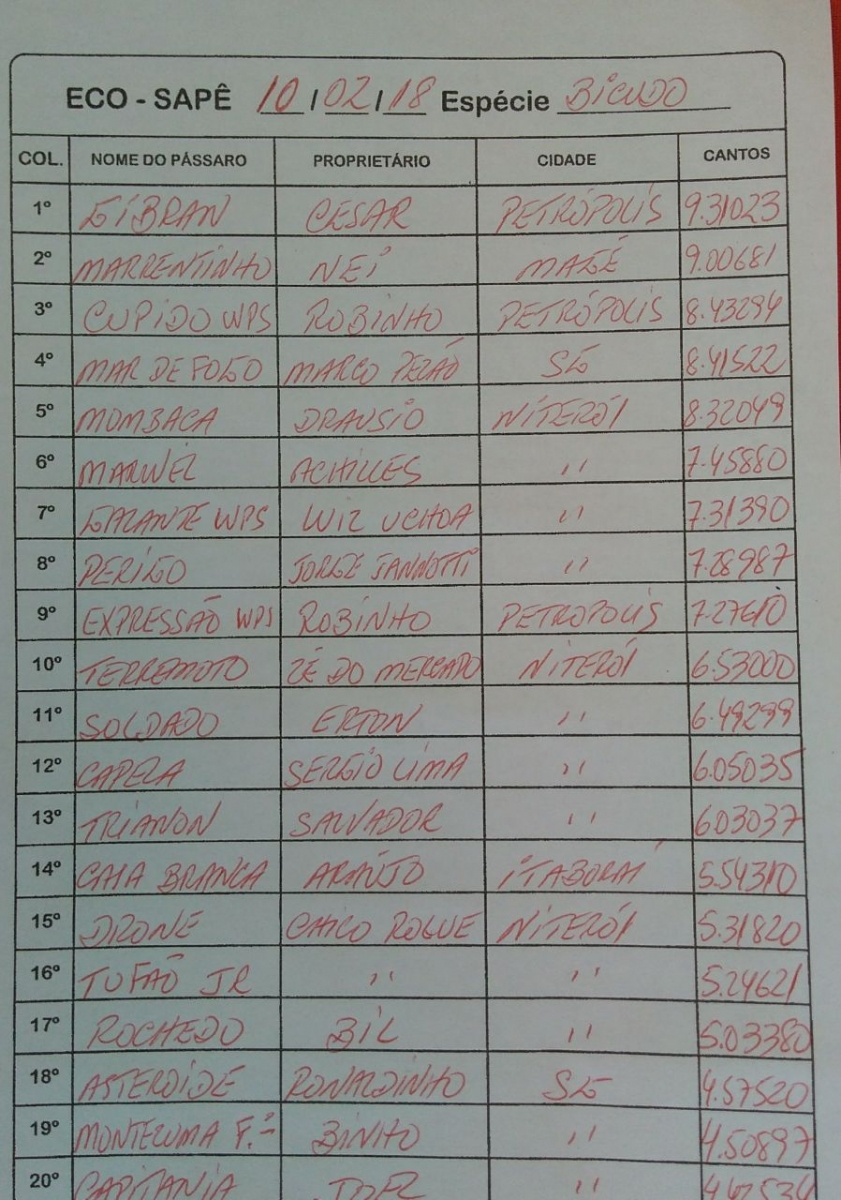 ECO - SAPÊ 10/02/18 Espécie BICUDO
COL. NOME DO PÁSSARO PROPRIETÁRIO CIDADE CANTOS
1º GIBRAN CESAR PETRÓPOLIS 9.31023
2º MARRENTINHO NEI MAGÉ 9.00681
3º CUPIDO WPS ROBINHO PETRÓPOLIS 8.43294
4º MAR DE FOGO MARCO PEZÃO SG 8.41522
5º MOMBACA DRAUSIO NITERÓI 8.32049
6º MARWEL ACHILLES " 7.45880
7º GALANTE WPS LUIZ UCHOA " 7.31390
8º PERIGO JORGE JANNOTTI " 7.28987
9º EXPRESSÃO WPS ROBINHO PETROPOLIS 7.27610
10º TERREMOTO ZÉ DO MERCADO NITERÓI 6.53000
11º SOLDADO ERTON " 6.49299
12º CAPELA SERGIO LIMA " 6.05035
13º TRIANON SALVADOR " 6.03037
14º GAIA BRANCA ARAÚJO ITABORAÍ 5.54310
15º DRONE CHICO ROGUE NITERÓI 5.31820
16º TUFÃO JR " " 5.24621
17º ROCHEDO BIL " 5.03380
18º ASTEROIDE RONALDINHO SG 4.57520
19º MONTEZUMA F.º BINHO " 4.50897
20º CAPITANIA JOEL "